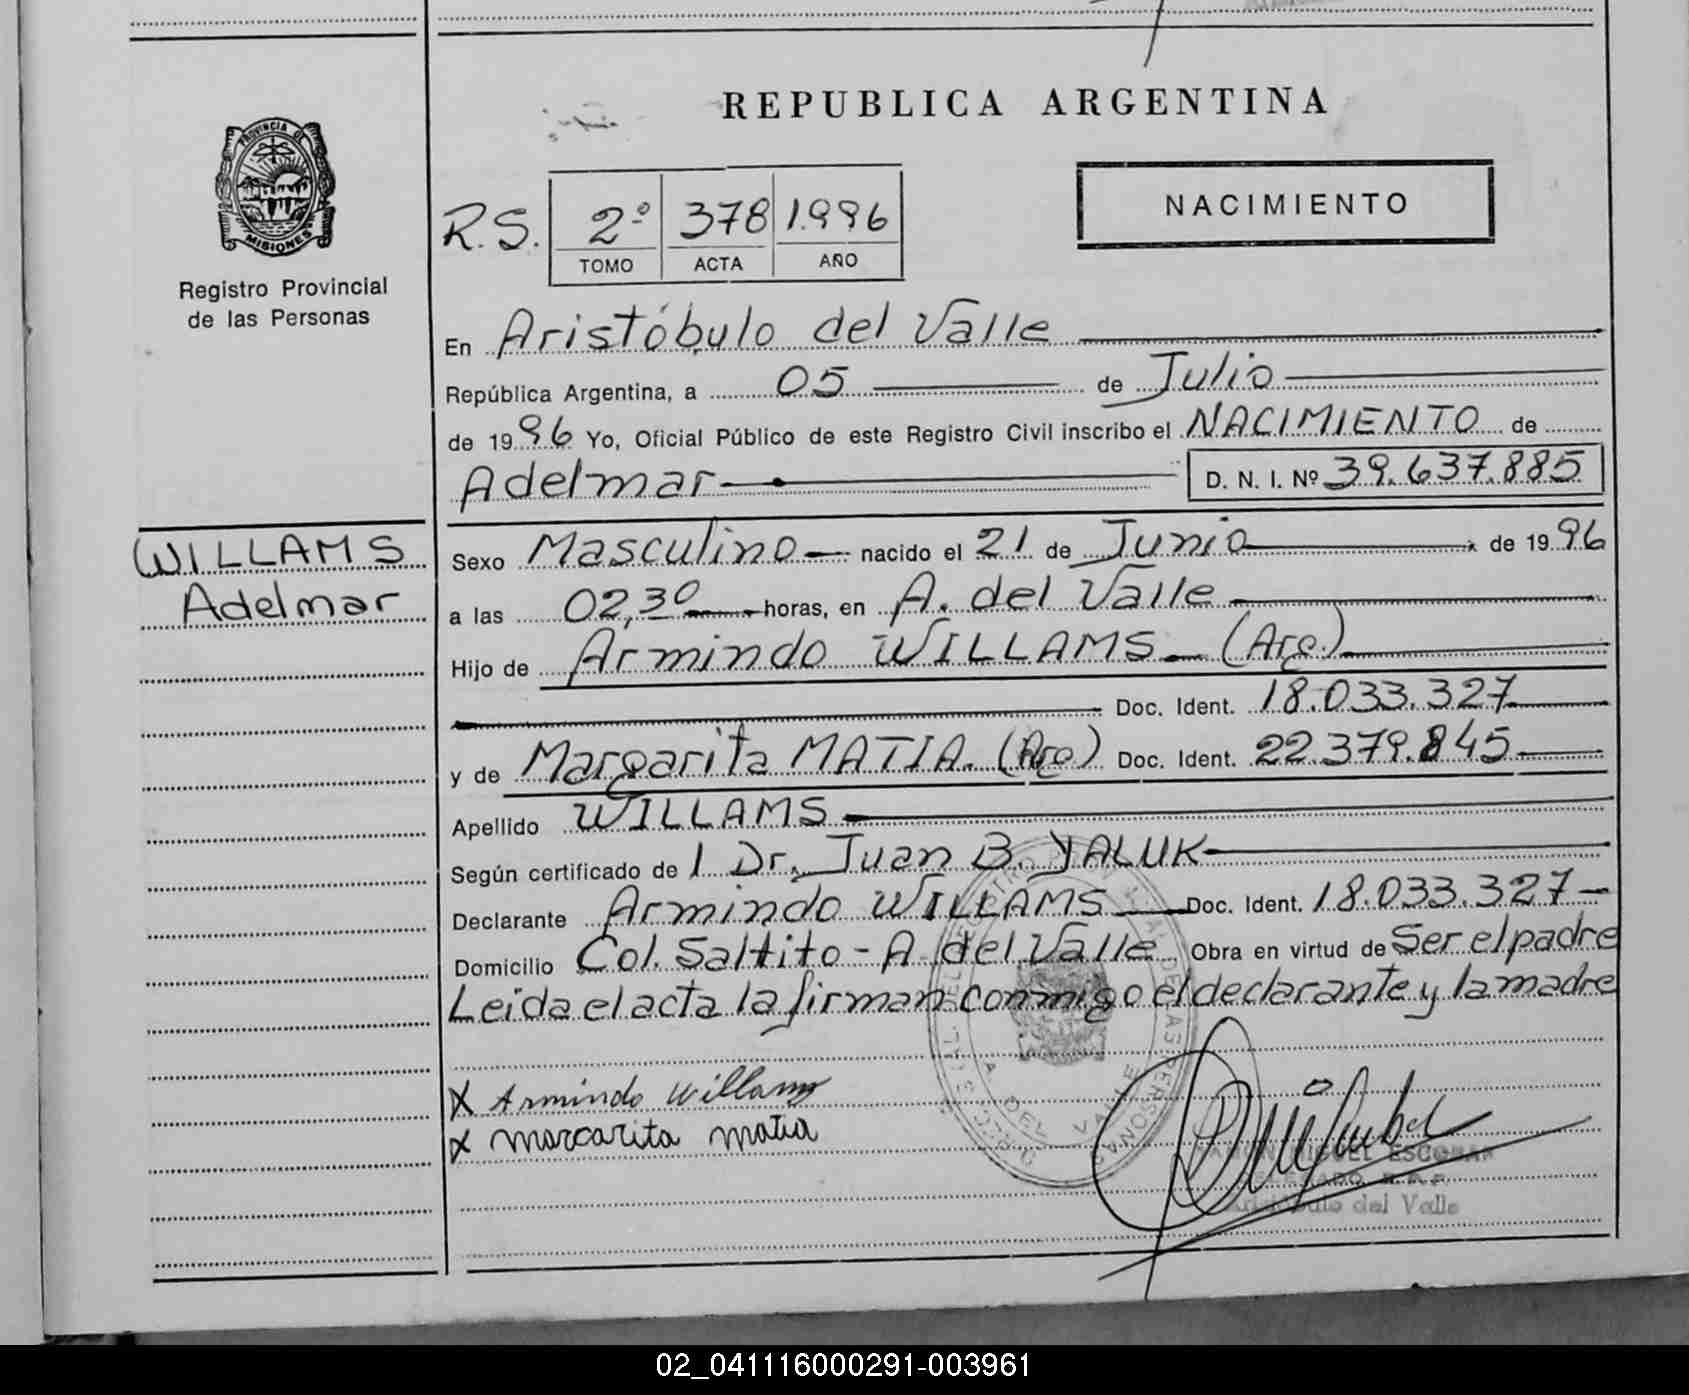 REPUBLICA ARGENTINA
PROVINCIA DE
MISIONES
Registro Provincial
de las Personas
R.S. 2º 378 1.996
TOMO ACTA AÑO
NACIMIENTO
En Aristóbulo del Valle
República Argentina, a 05 de Julio
de 1996 Yo, Oficial Público de este Registro Civil inscribo el NACIMIENTO de
Adelmar D. N. I. Nº 39.637.885
WILLAMS
Adelmar
Sexo Masculino nacido el 21 de Junio de 1996
a las 02,30 horas, en A. del Valle
Hijo de Armindo WILLAMS (Arg.)
Doc. Ident. 18.033.327
y de Margarita MATIA. (Arg) Doc. Ident. 22.379.845
Apellido WILLAMS
Según certificado de 1 Dr. Juan B. YALUK
Declarante Armindo WILLAMS Doc. Ident. 18.033.327
Domicilio Col. Saltito - A. del Valle Obra en virtud de Ser el padre
Leída el acta la firman conmigo el declarante y la madre
X Armindo Willams
X Margarita Matia
A. DEL VALLE
MIGUEL ESCOBAR
Aristóbulo del Valle
02_041116000291-003961